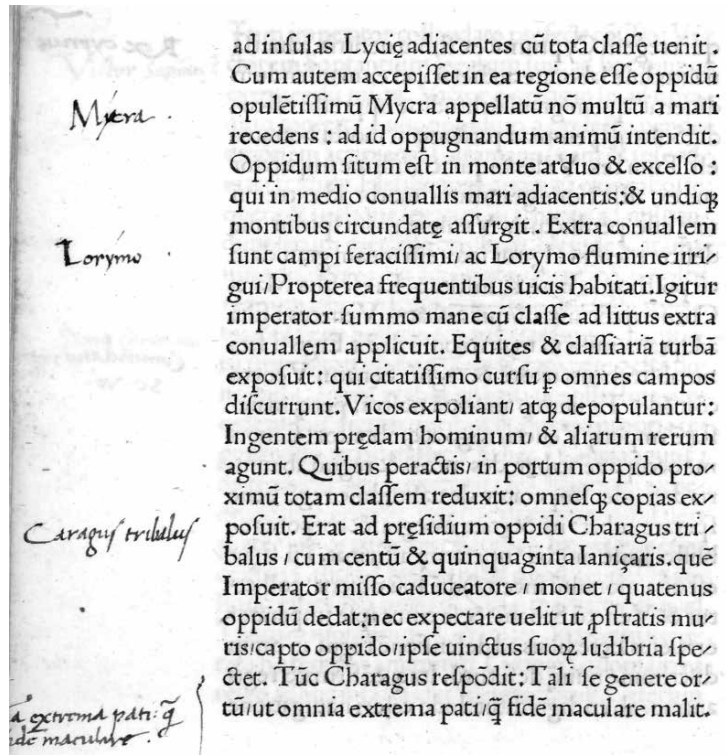 ad inſulas Lycię adiacentes cū tota claſſe uenit.
Cum autem accepiſſet in ea regione eſſe oppidū
Mycra .
opulētiſſimū Mycra appellatū nō multū a mari
recedens : ad id oppugnandum animū intendit.
Oppidum ſitum eſt in monte arduo & excelſo :
qui in medio conuallis mari adiacentis:& undiqꝫ
montibus circundatę aſſurgit . Extra conuallem
Lorymo .
ſunt campi feraciſſimi/ ac Lorymo flumine irri/
gui/Propterea frequentibus uicis habitati.Igitur
imperator ſummo mane cū claſſe ad littus extra
conuallem applicuit. Equites & claſſiariā turbā
expoſuit: qui citatiſſimo curſu ꝑ omnes campos
diſcurrunt. Vicos expoliant/ atqꝫ depopulantur:
Ingentem prędam hominum/ & aliarum rerum
agunt. Quibus peractis/ in portum oppido pro/
ximū totam claſſem reduxit: omneſqꝫ copias ex/
Caraguſ tribaluſ
poſuit. Erat ad pręſidium oppidi Charagus tri/
balus / cum centū & quinquaginta Ianiçaris.quē
Imperator miſſo caduceatore / monet / quatenus
oppidū dedat:nec expectare uelit ut ꝓſtratis mu/
ris/capto oppido/ipſe uinctus ſuoꝝ ludibria ſpe/
ctet. Tūc Charagus reſpōdit: Tali ſe genere or/
tū/ut omnia extrema pati/q̄ fidē maculare malit.
extrema pati: q̄
maculare .